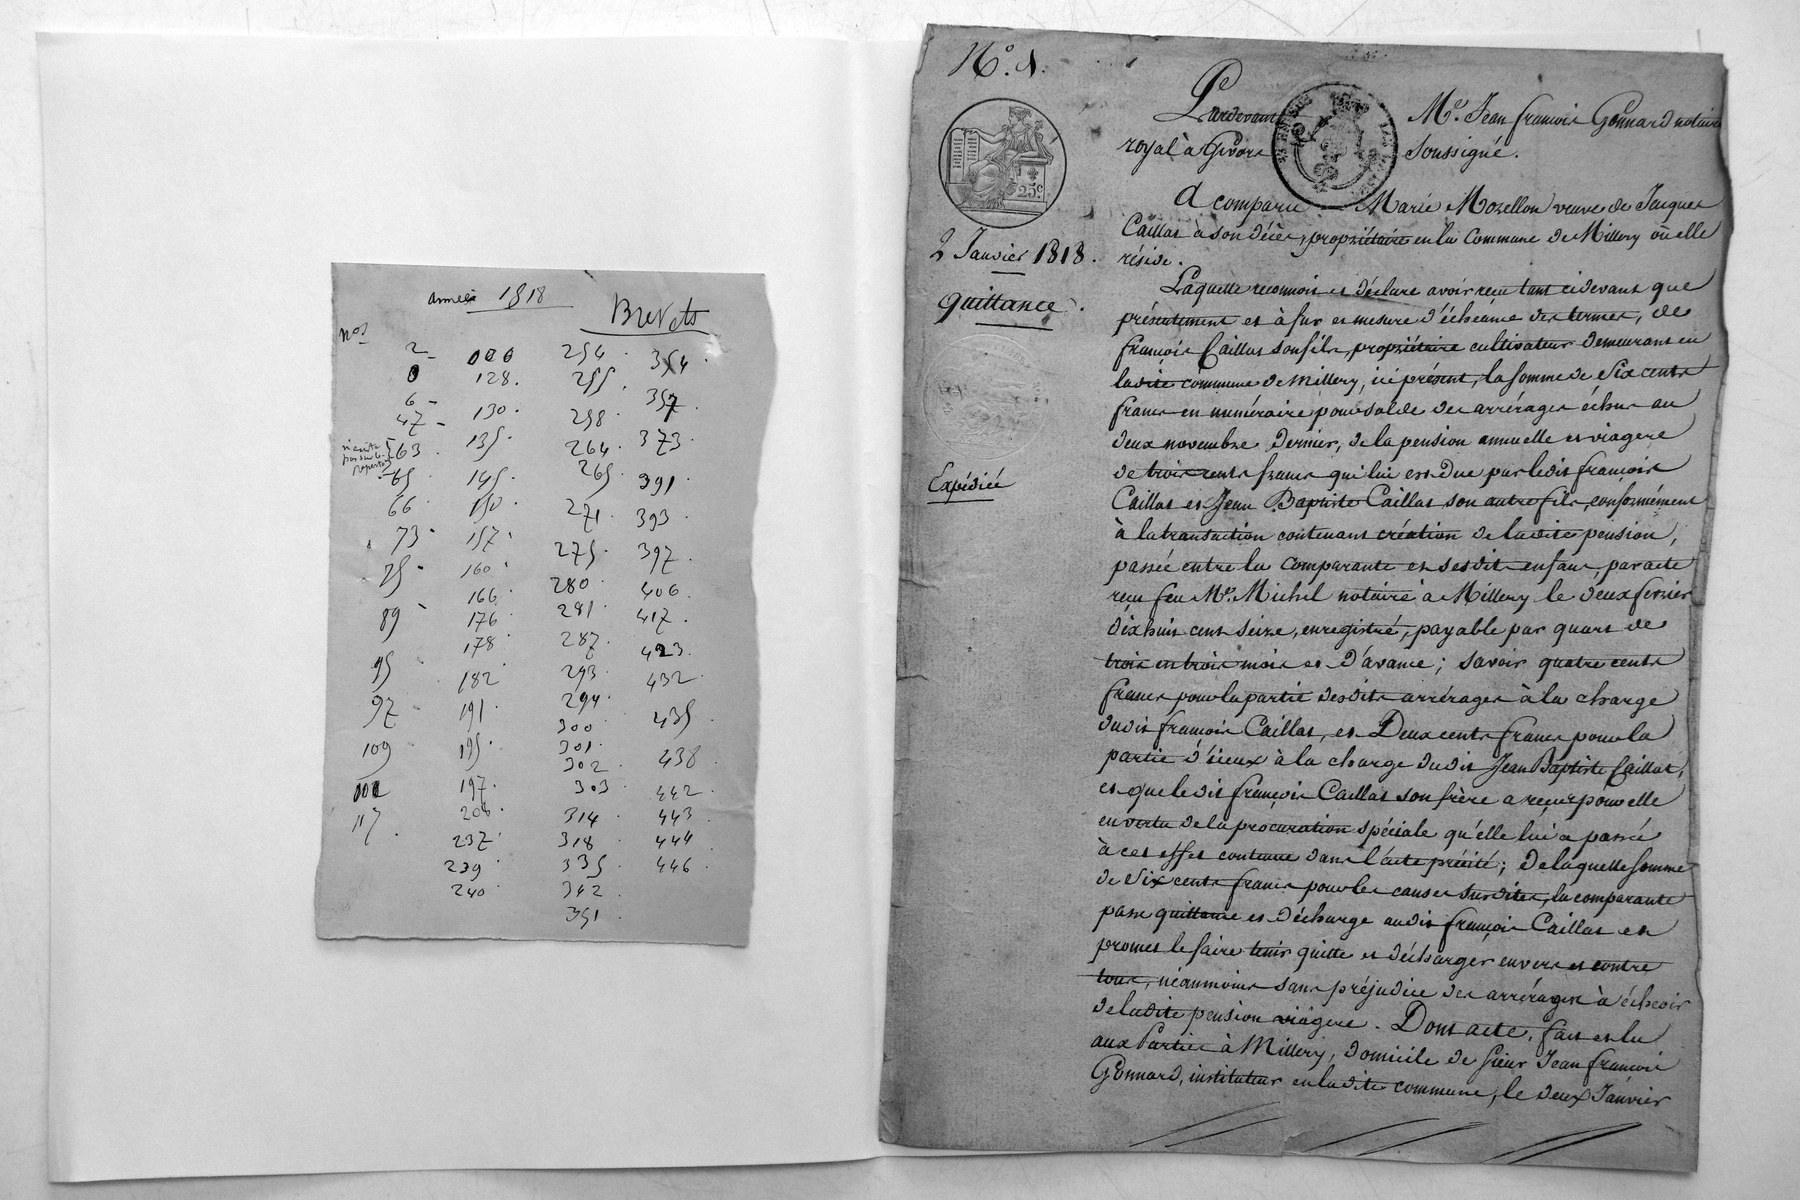 année 1818
Brevets
nos
2 -
6 -
47 -
63 .
65
66
73 .
75 -
89 -
95
97
109
117 .
128 .
130 .
135 .
145 .
150
157 .
160
166
176
178
182
191
195
197
208
237
239
240
254 .
255 .
258
264 .
265 .
271 .
275 .
280
281 .
287
293
294
300
301 .
302
303
314 .
318
335 .
342
351 .
354 .
357
373
391
393
397
406
417 .
423
432
435
438
442
443
444
446
N°. 1.
25c
2 Janvier 1818.
Quittance.
Expédiée
Pardevant Me. Jean françois Gonnard notaire
royal à Givors soussigné.
A comparu Marie Mozellon veuve de Jacques
Caillat à son décès, propriétaire en la Commune de Millery où elle
réside.
Laquelle reconnoit et déclare avoir reçu tant cidevant que
présentement et à fur et mesure d'échéance des termes, de
françois Caillat son fils, propriétaire cultivateur demeurant en
ladite commune de Millery, ici présent, la somme de Six cents
francs en numéraire pour solde des arrérages échus au
deux novembre dernier, de la pension annuelle et viagere
de trois cents francs qui lui est due par ledit françois
Caillat et Jean Baptiste Caillat son autre fils, conformément
à la transaction contenant création de ladite pension,
passée entre la comparante et sesdits enfans, par acte
reçu feu Me. Michel notaire à Millery le deux fevrier
dix huit cent seize, enregistré, payable par quart de
trois en trois mois et d'avance ; savoir quatre cents
francs pour la partie desdits arrérages à la charge
dudit françois Caillat, et Deux cents francs pour la
partie d'iceux à la charge dudit Jean Baptiste Caillat,
et que ledit françois Caillat son frère a reçus pour elle
en vertu de la procuration spéciale qu'elle lui a passé
à cet effet contenue dans l'acte précité ; de laquelle somme
de Six cents francs pour les causes susdites, la comparante
passe quittance et décharge audit françois Caillat et
promet le faire tenir quitte et décharger envers et contre
tous, néanmoins sans préjudice des arrérages à échoir
de ladite pension viagere. Dont acte, fait et lu
aux Parties à Millery, domicile de Sieur Jean françois
Gonnard, instituteur en ladite commune, le deux Janvier